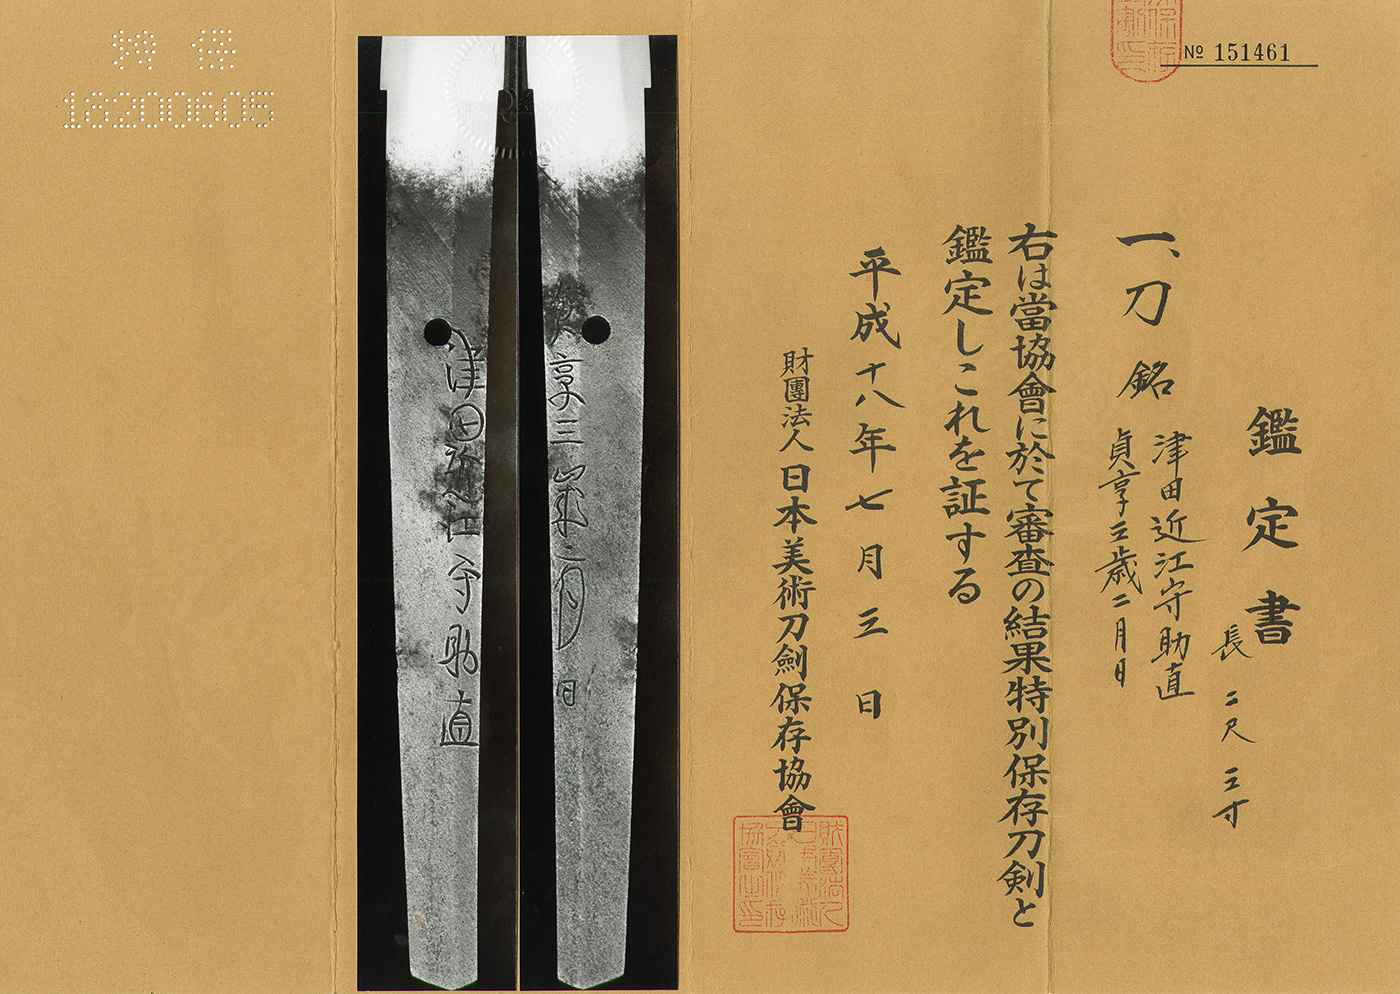 № 151461
鑑定書
一、刀 銘 津田近江守助直
貞享三歳二月日
長 二尺 三寸
右は當協會に於て審査の結果特別保存刀剣と
鑑定しこれを証する
平成十八年七月三日
財團法人 日本美術刀劍保存協會
津田近江守助直
貞享三歳二月日
特 保
18200605